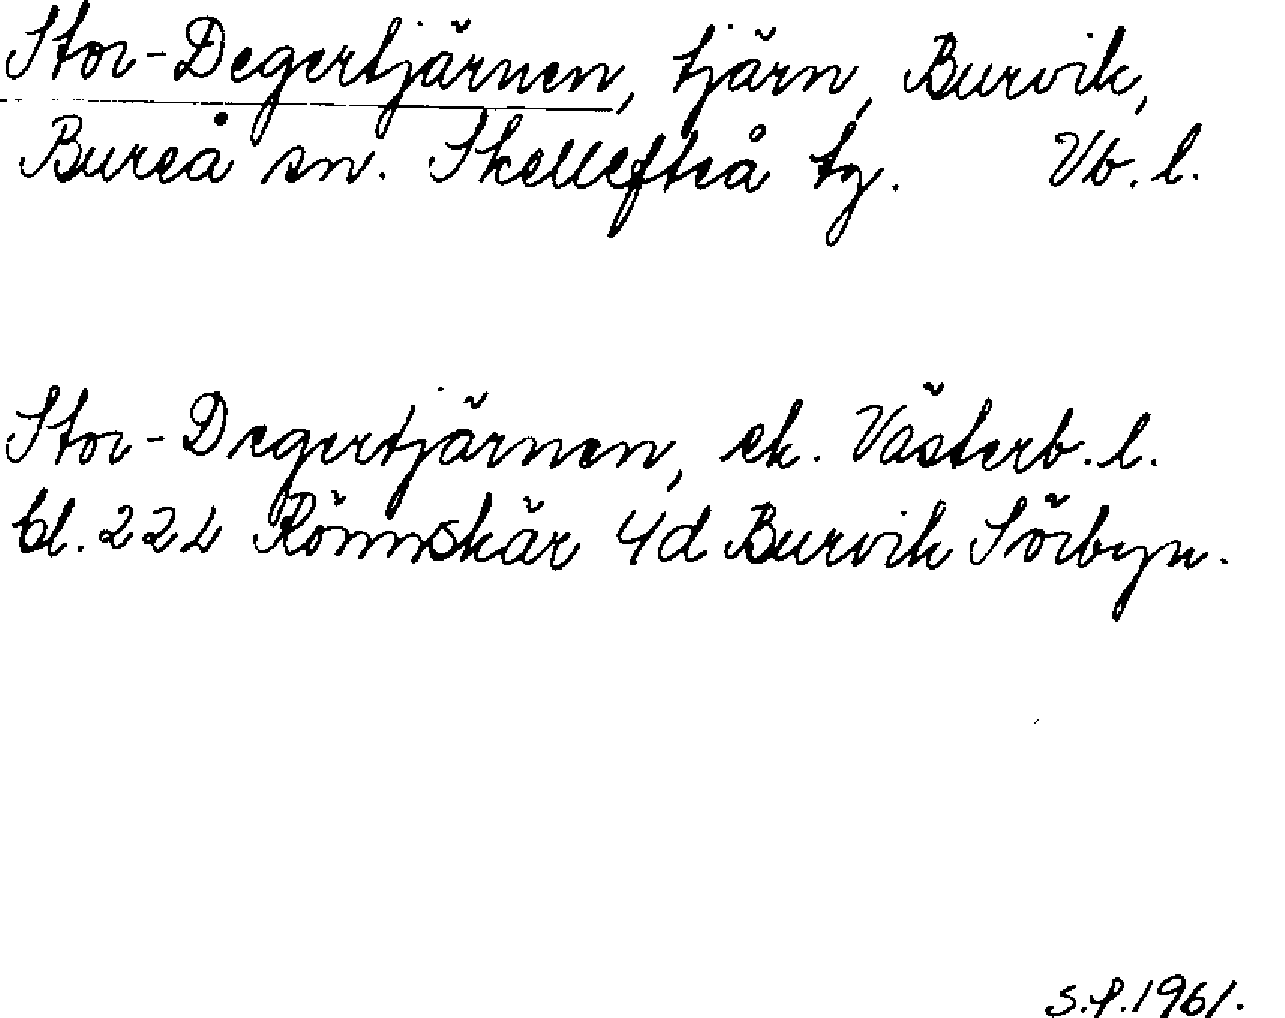 Stor-Degertjärnen, tjärn, Burvik,
Bureå sn. Skellefteå tg. Vb. l.
Stor-Degertjärnen, ek. Västerb. l.
bl. 22L Rönnskär 4d Burvik Sörbyn.
S.P. 1961.